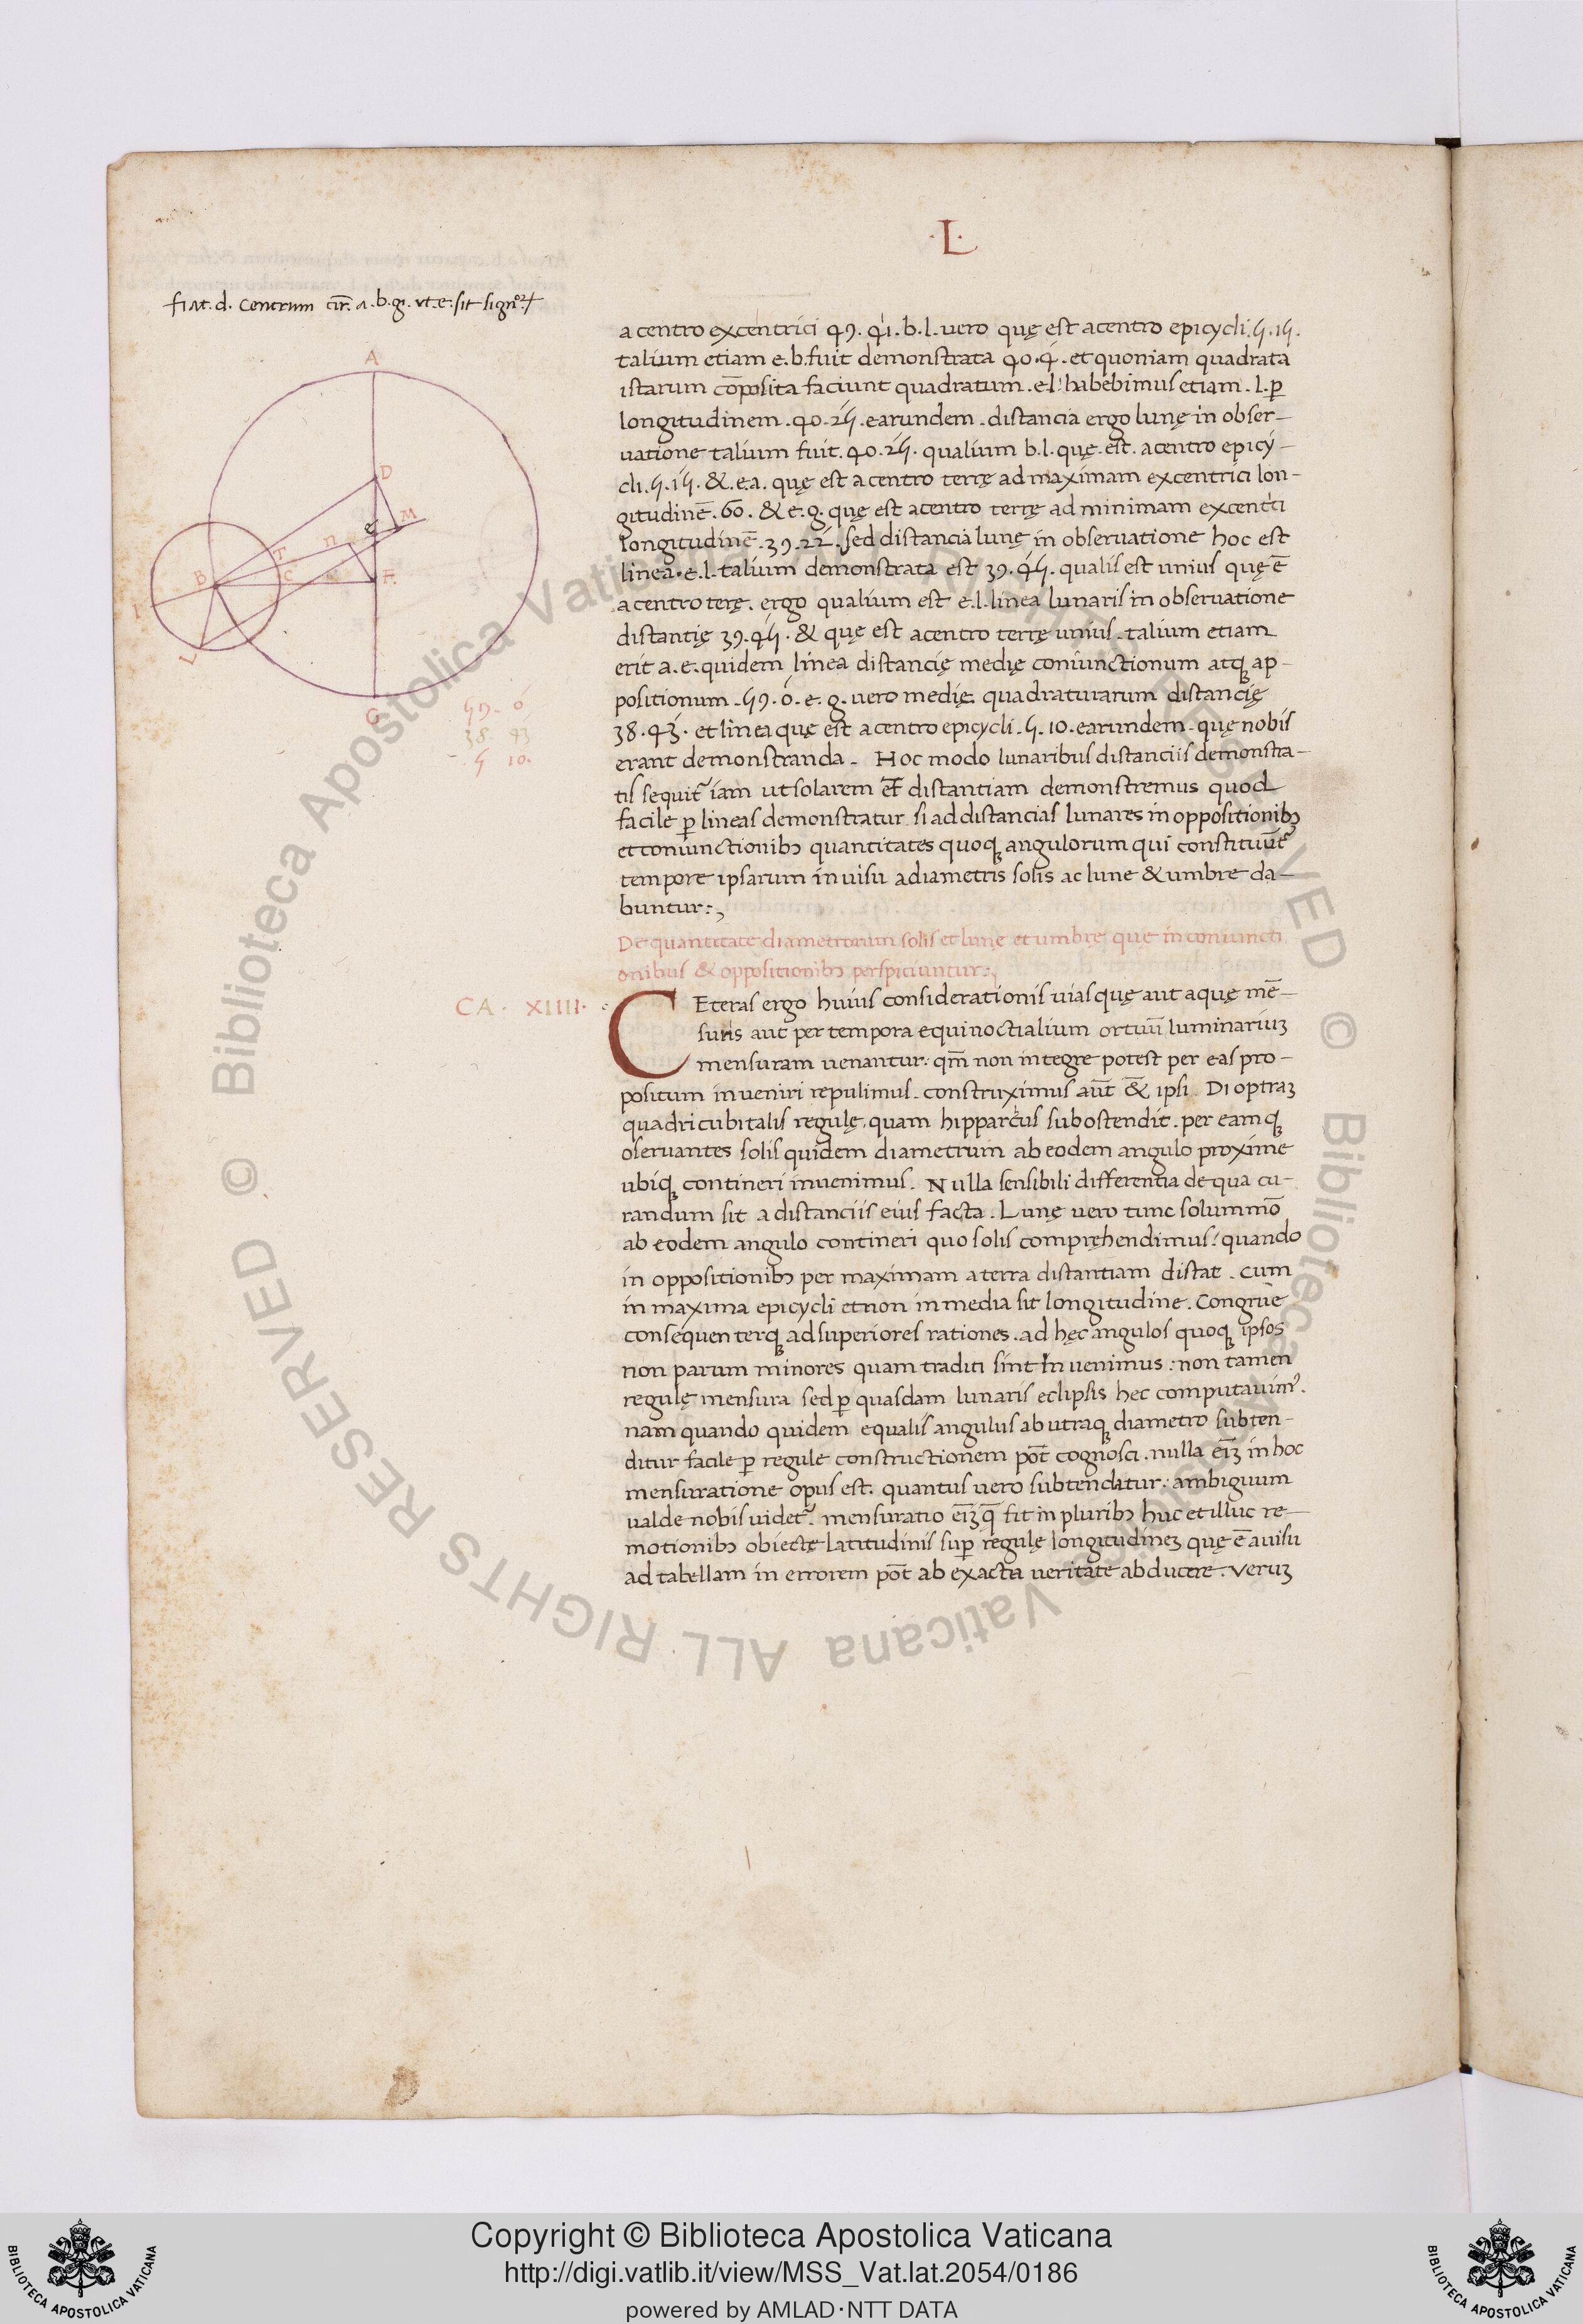 ·L·
fiat. d. centrum cir̃. a. b. g. vt. e. sit
A
D
M
e
n
T
B
C
L
G
59. ó
38. 43
5 10.
a centro excentrici 49. 41. b. l. vero quę est a centro epicycli. 5. 15.
talium etiam e. b. fuit demonstrata 40. 4. et quoniam quadrata
istarum cõposita faciunt quadratum. e. l. habebimus etiam. l. ꝑ
longitudinem. 40. 25. earundem. distancia ergo lunę in obser-
uatione talium fuit. 40. 25. qualium b. l. quę. est. a centro epicy-
cli. 5. 15. &. e. a. quę est a centro terrę ad maximam excentrici lon-
gitudinẽ. 60. & e. g. quę est a centro terrę ad minimam excentrici
longitudinẽ. 39. 22. sed distancia lunę in obseruatione hoc est
linea. e. l. talium demonstrata est 39. 45. qualis est unius quę ẽ
a centro terę. ergo qualium est e. l. linea lunaris in obseruatione
distantię 39. 45. & quę est a centro terrę unius. talium etiam
erit a. e. quidem linea distancię medię coniunctionum atqꝫ ap-
positionum. 59. ó. e. g. vero medię quadraturarum distancię
38. 43. et linea quę est a centro epicycli. 5. 10. earundem. quę nobis
erant demonstranda. Hoc modo lunaribus distanciis demonstra-
tis sequit᷑ iam ut solarem et distantiam demonstremus quod
facile ꝑ lineas demonstratur si ad distancias lunares in oppositionibꝫ
et coniunctionibꝫ quantitates quoqꝫ angulorum qui constituũt᷑
tempore ipsarum in uisu a diametris solis ac lune & umbre da-
buntur:,
De quantitate diametrorum solis et lunę et umbrę quę in coniuncti
onibus & oppositionibꝫ perspiciuntur:,
CA. XIIII.
CEteras ergo huius considerationis uias quę aut aquę mẽ-
suris aut per tempora equinoctialium ortuũ luminariuꝫ
mensuram uenantur: qm̃ non integre potest per eas pro-
positum inueniri repulimus. construximus aũt & ipsi Dioptraꝫ
quadricubitalis regulę, quam hipparcus subostendit. per eamqꝫ
oseruantes solis quidem diametrum ab eodem angulo proxime
ubiqꝫ contineri inuenimus. Nulla sensibili differentia de qua cu-
randum sit a distanciis eius facta. Lunę uero tunc solummõ
ab eodem angulo contineri quo solis compręhendimus: quando
in oppositionibꝫ per maximam a terra distantiam distat. cum
in maxima epicycli et non in media sit longitudine. Congrue
consequenterqꝫ ad superiores rationes. ad hęc angulos quoqꝫ ipsos
non parum minores quam traditi sint Inuenimus: non tamen
regulę mensura sed ꝑ quasdam lunaris eclipsis hec computauim᷒.
nam quando quidem equalis angulus ab utraqꝫ diametro subten-
ditur facile ꝑ regule constructionem põt cognosci. nulla eĩꝫ in hoc
mensuratione opus est. quantus uero subtendatur: ambiguum
ualde nobis uidet᷑. mensuratio eĩꝫ q̃ fit in pluribꝫ huc et illuc re-
motionibꝫ obiectę latitudinis suꝑ regulę longitudineꝫ quę ẽ a uisu
ad tabellam in errorem põt ab exacta ueritate abducere. veruꝫ
© Biblioteca Apostolica Vaticana ALL RIGHTS RESERVED
Copyright © Biblioteca Apostolica Vaticana
http://digi.vatlib.it/view/MSS_Vat.lat.2054/0186
powered by AMLAD·NTT DATA
BIBLIOTECA APOSTOLICA VATICANA
BIBLIOTECA APOSTOLICA VATICANA